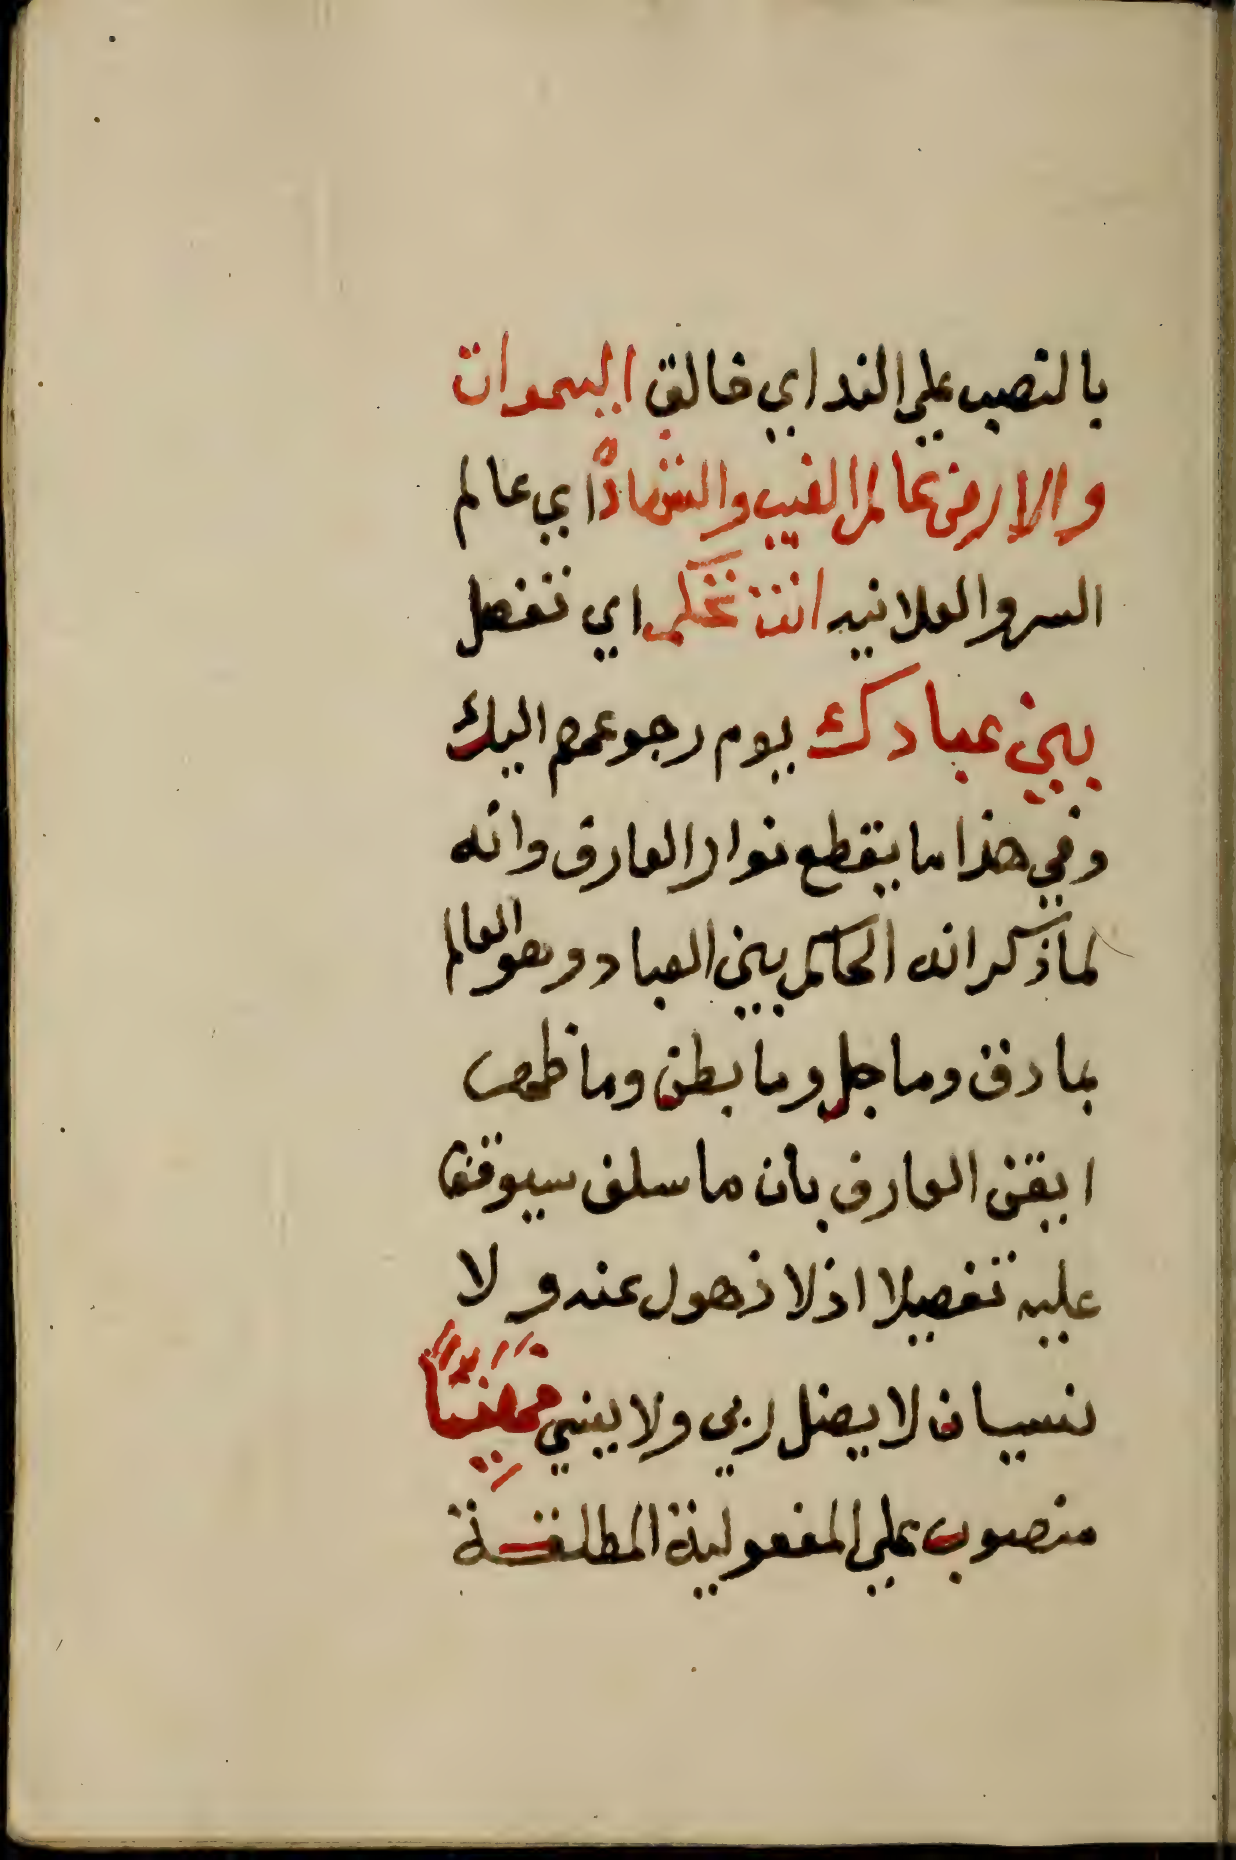 بالنصب علي الندا اي خالق السموات
والارض عالم الغيب والشهادة اي عالم
السر والعلانيه انت تحكم اي تفصل
بين عبادك يوم رجوعهم اليك
وفي هذا ما يقطع نوار العارف وانه
لما ذكر انه الحاكم بين العباد وهو العالم
بما دق وما جل وما بطن وما ظهر
ايقن العارف بان ما سلف سيوقف
عليه تفصيلا اذ لا ذهول عنه ولا
نسيان لا يضل ربي ولا ينسي هنيئًا
منصوب علي المفعولية المطلقة